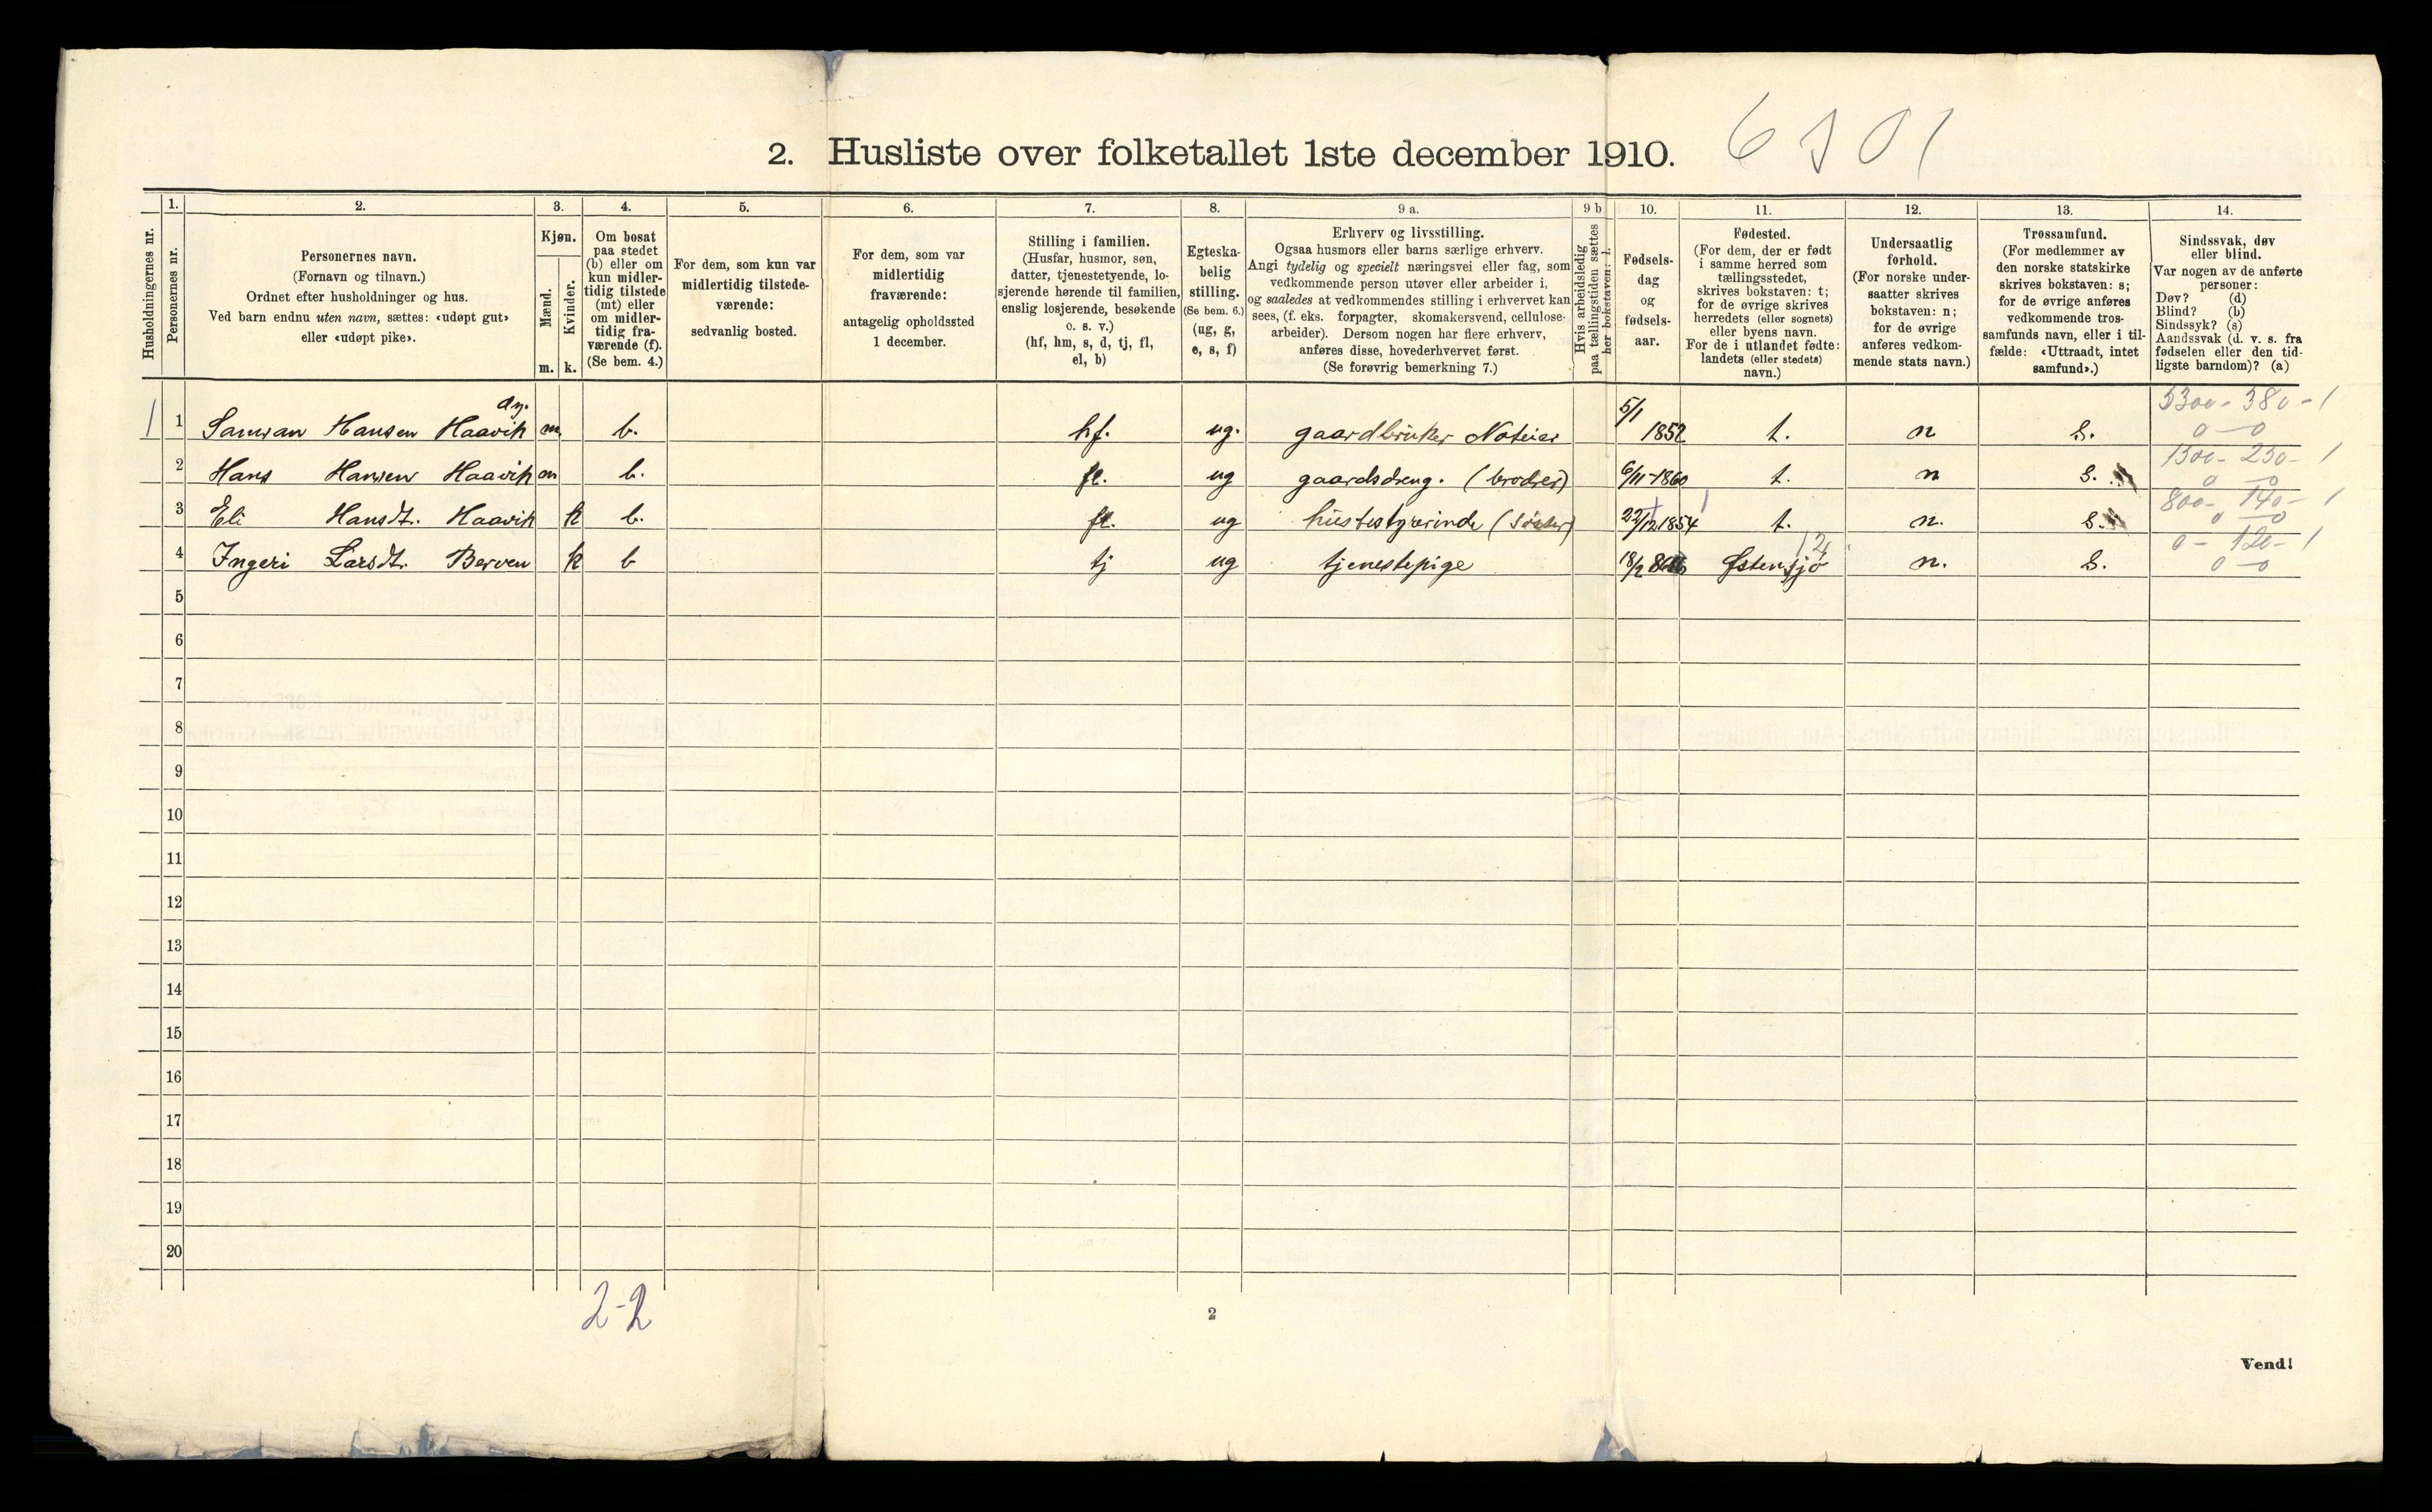 2. Husliste over folketallet 1ste december 1910.
Husholdningernes nr.
1. Personernes nr.
2. Personernes navn. (Fornavn og tilnavn.) Ordnet efter husholdninger og hus. Ved barn endnu uten navn, sættes: «udøpt gut» eller «udøpt pike».
3. Kjøn. Mænd. m. Kvinder. k.
4. Om bosat paa stedet (b) eller om kun midlertidig tilstede (mt) eller om midlertidig fraværende (f). (Se bem. 4.)
5. For dem, som kun var midlertidig tilstedeværende: sedvanlig bosted.
6. For dem, som var midlertidig fraværende: antagelig opholdssted 1 december.
7. Stilling i familien. (Husfar, husmor, søn, datter, tjenestetyende, losjerende hørende til familien, enslig losjerende, besøkende o. s. v.) (hf, hm, s, d, tj, fl, el, b)
8. Egteskabelig stilling. (Se bem. 6.) (ug, g, e, s, f)
9 a. Erhverv og livsstilling. Ogsaa husmors eller barns særlige erhverv. Angi tydelig og specielt næringsvei eller fag, som vedkommende person utøver eller arbeider i, og saaledes at vedkommendes stilling i erhvervet kan sees, (f. eks. forpagter, skomakersvend, cellulosearbeider). Dersom nogen har flere erhverv, anføres disse, hovederhvervet først. (Se forøvrig bemerkning 7.)
9 b Hvis arbeidsledig paa tællingstiden sættes her bokstaven: l.
10. Fødselsdag og fødselsaar.
11. Fødested. (For dem, der er født i samme herred som tællingsstedet, skrives bokstaven: t; for de øvrige skrives herredets (eller sognets) eller byens navn. For de i utlandet fødte: landets (eller stedets) navn.)
12. Undersaatlig forhold. (For norske undersaatter skrives bokstaven: n; for de øvrige anføres vedkommende stats navn.)
13. Trossamfund. (For medlemmer av den norske statskirke skrives bokstaven: s; for de øvrige anføres vedkommende trossamfunds navn, eller i tilfælde: «Uttraadt, intet samfund».)
14. Sindssvak, døv eller blind. Var nogen av de anførte personer: Døv? (d) Blind? (b) Sindssyk? (s) Aandssvak (d. v. s. fra fødselen eller den tidligste barndom)? (a)
1 1 Hansen Haavik m. b. hf. ug. gaardbruker 5/1 1852 t. n S. 380-1 0-0
2 Hans Hansen Haavik m b. fl. ug gaardsdreng. (broder) 6/11-1860 t. n S. 1300- 250- 1 0-0
3 Eli Hansdt. Haavik k b. fl. ug husbestyrerinde (søster) 22/12 1854 t. n. S. 800- 140- 1 0-0
4 Ingeri Larsdt. Berven k b tj ug tjenestepige 18/2 Østensjø n. S. 0- 120- 1 0-0
5
6
7
8
9
10
11
12
13
14
15
16
17
18
19
20
2-2
2
Vend!